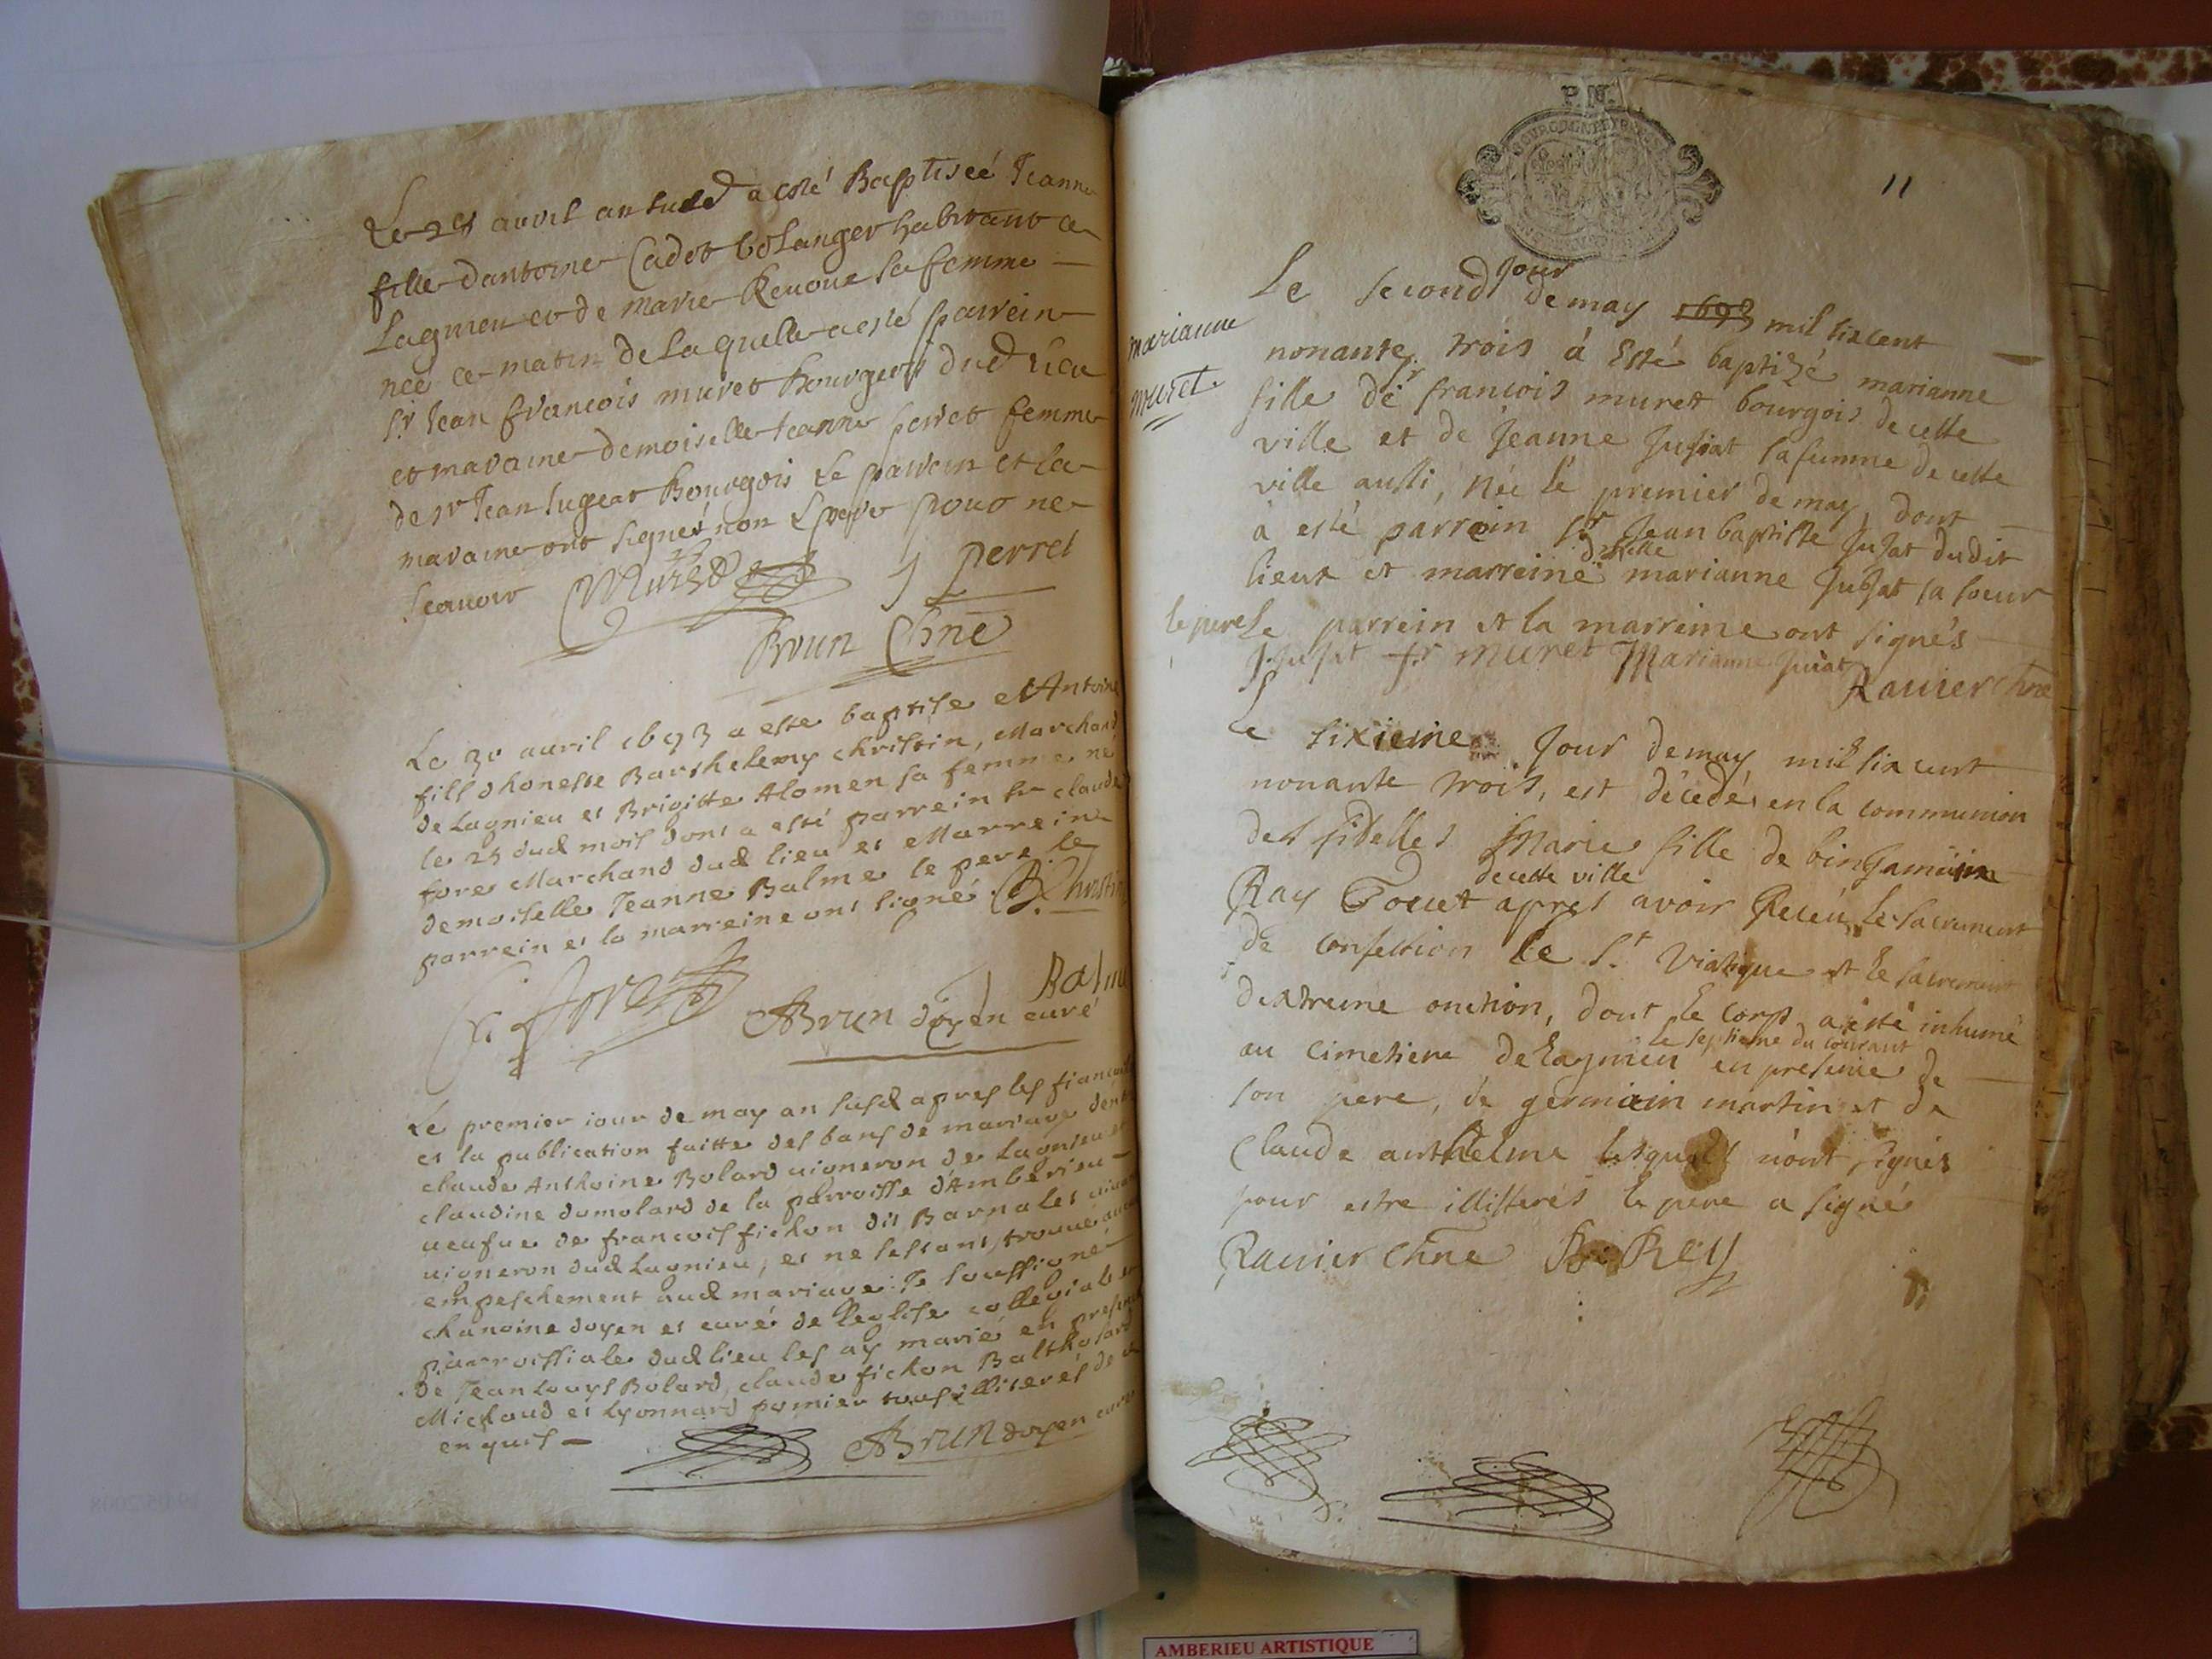 avril an susd a esté Baptiseé Jeanne
fille dantoine Cadot bolanger habitant a
Lagnieu et de Marie sa femme
neé ce matin de laquelle a esté parrein
Sr Jean françois muret bourgeois dud lieu
et maraine demoiselle Jeanne perret femme
de Sr Jean bourgois le parrein et la
maraine ont signés non le pere pour ne
scauoir Muret J perret
Brun Chne
Le 30 auril 1693 a este baptise Antoine
fils dhoneste Barthelemy christin, Marchand
de Lagnieu et Brigitte Alomen sa femme ne
le 29 dud mois dont a esté parrein sr claude
fore Marchand dud lieu et Marreine
demoiselle Jeanne Balme le pere le
parrein et la marreine ont signé. B. Christin
C. fore J Balme
ABrun doyen curé
Le premier iour de may an susd apres les fiancailles
et la publication faitte des bans de mariage dentre
claude Anthoine Bolard uigneron de Lagnieu et
claudine dumolard de la parroisse d'Amberieu
ueufue de francois fichon dit Barnales
uigneron dud Lagnieu, et ne sestant trouué aucun
empeschement aud mariage: Je soussigné
chanoine doyen et curé de Leglise collegiale et
parroissiale dud lieu les ay marié en presence
de Jean Louys Bolard, claude fichon Balthasard
Michaud et Lyonnard pomier tous illiterés de ce
enquis ABRUN doyen curé
P.N.
11
marianne
muret
Le second jour de may 1693 mil six cent
nonante trois á Esté baptizé marianne
fille de Sr francois muret bourgois de cette
ville et de Jeanne Jujat sa femme de cette
ville aussi, née le premier de may, dont
à esté parrein Sr Jean baptiste Jujat dudit
lieut et marreine dlle marianne Jujat sa soeur
le pere Le parrein et la marreine ont signés
J. Jujat fr muret Marianne Juiat
Rauier Chne
Le sixieme Jour de may mil six cent
nonante trois, est décedé en la communion
des fidelles Marie fille de binjamin
Ray Touet de cette ville apres avoir Receu le sacrement
de confession le St. Viatique et le sacrement
dextreme onction, dont le corp a esté inhumé
au Cimetiere de Lagnieu le septieme du courant en presence de
son pere, de germain martin et de
Claude anthelme lesquels n'ont signés
pour estre illitterés le pere a signé
Rauier Chne B. REY
AMBERIEU ARTISTIQUE